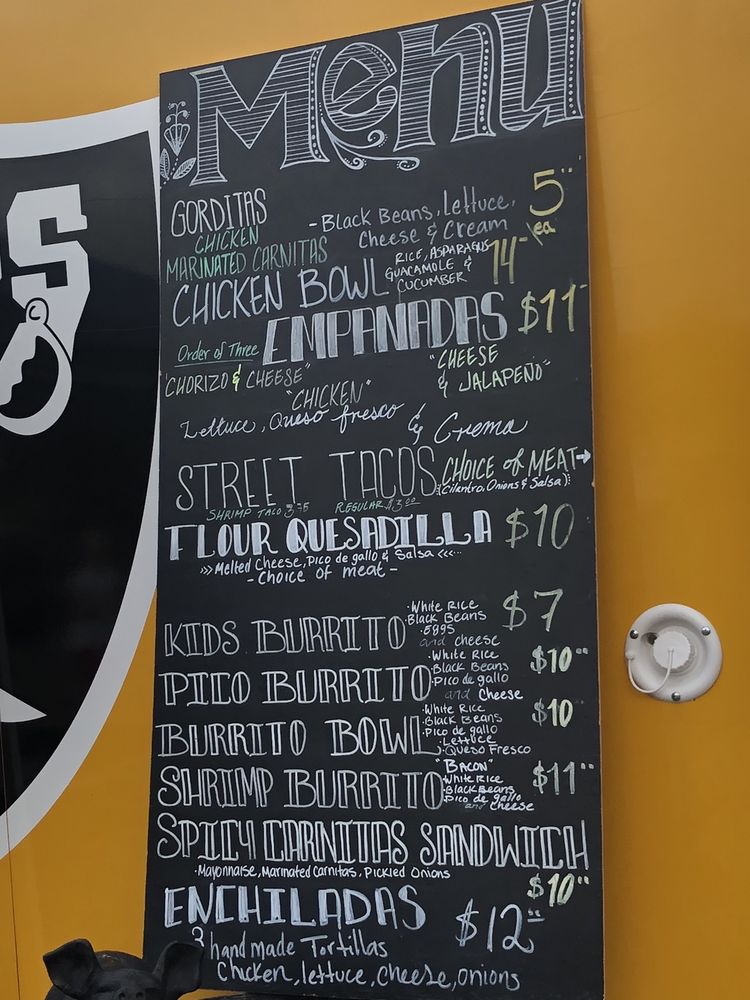 Menu
GORDITAS
CHICKEN
MARINATED CARNITAS
-Black Beans, Lettuce,
Cheese & Cream
5
ea
CHICKEN BOWL
RICE, ASPARAGUS
GUACAMOLE &
CUCUMBER
14
EMPANADAS $11
Order of Three
"CHORIZO & CHEESE"
"CHICKEN"
"CHEESE
& JALAPEÑO"
Lettuce, Queso fresco & Crema
STREET TACOS
CHOICE of MEAT→
(Cilantro, Onions & Salsa)
SHRIMP TACO 3.75
REGULAR $3.00
FLOUR QUESADILLA $10
>>> Melted Cheese, Pico de gallo & Salsa <<<
- Choice of meat -
KIDS BURRITO
·White Rice
·Black Beans
·eggs
and cheese
$7
PICO BURRITO
·White Rice
·Black Beans
·Pico de gallo
and Cheese
$10
BURRITO BOWL
·White Rice
·Black Beans
·Pico de gallo
·Lettuce
·Queso Fresco
$10
SHRIMP BURRITO
"BACON"
White Rice
·Black Beans
Pico de gallo
and Cheese
$11
SPICY CARNITAS SANDWICH
·Mayonnaise, Marinated Carnitas, Pickled Onions
$10
ENCHILADAS $12
3 hand made Tortillas
Chicken, lettuce, cheese, onions
S
C